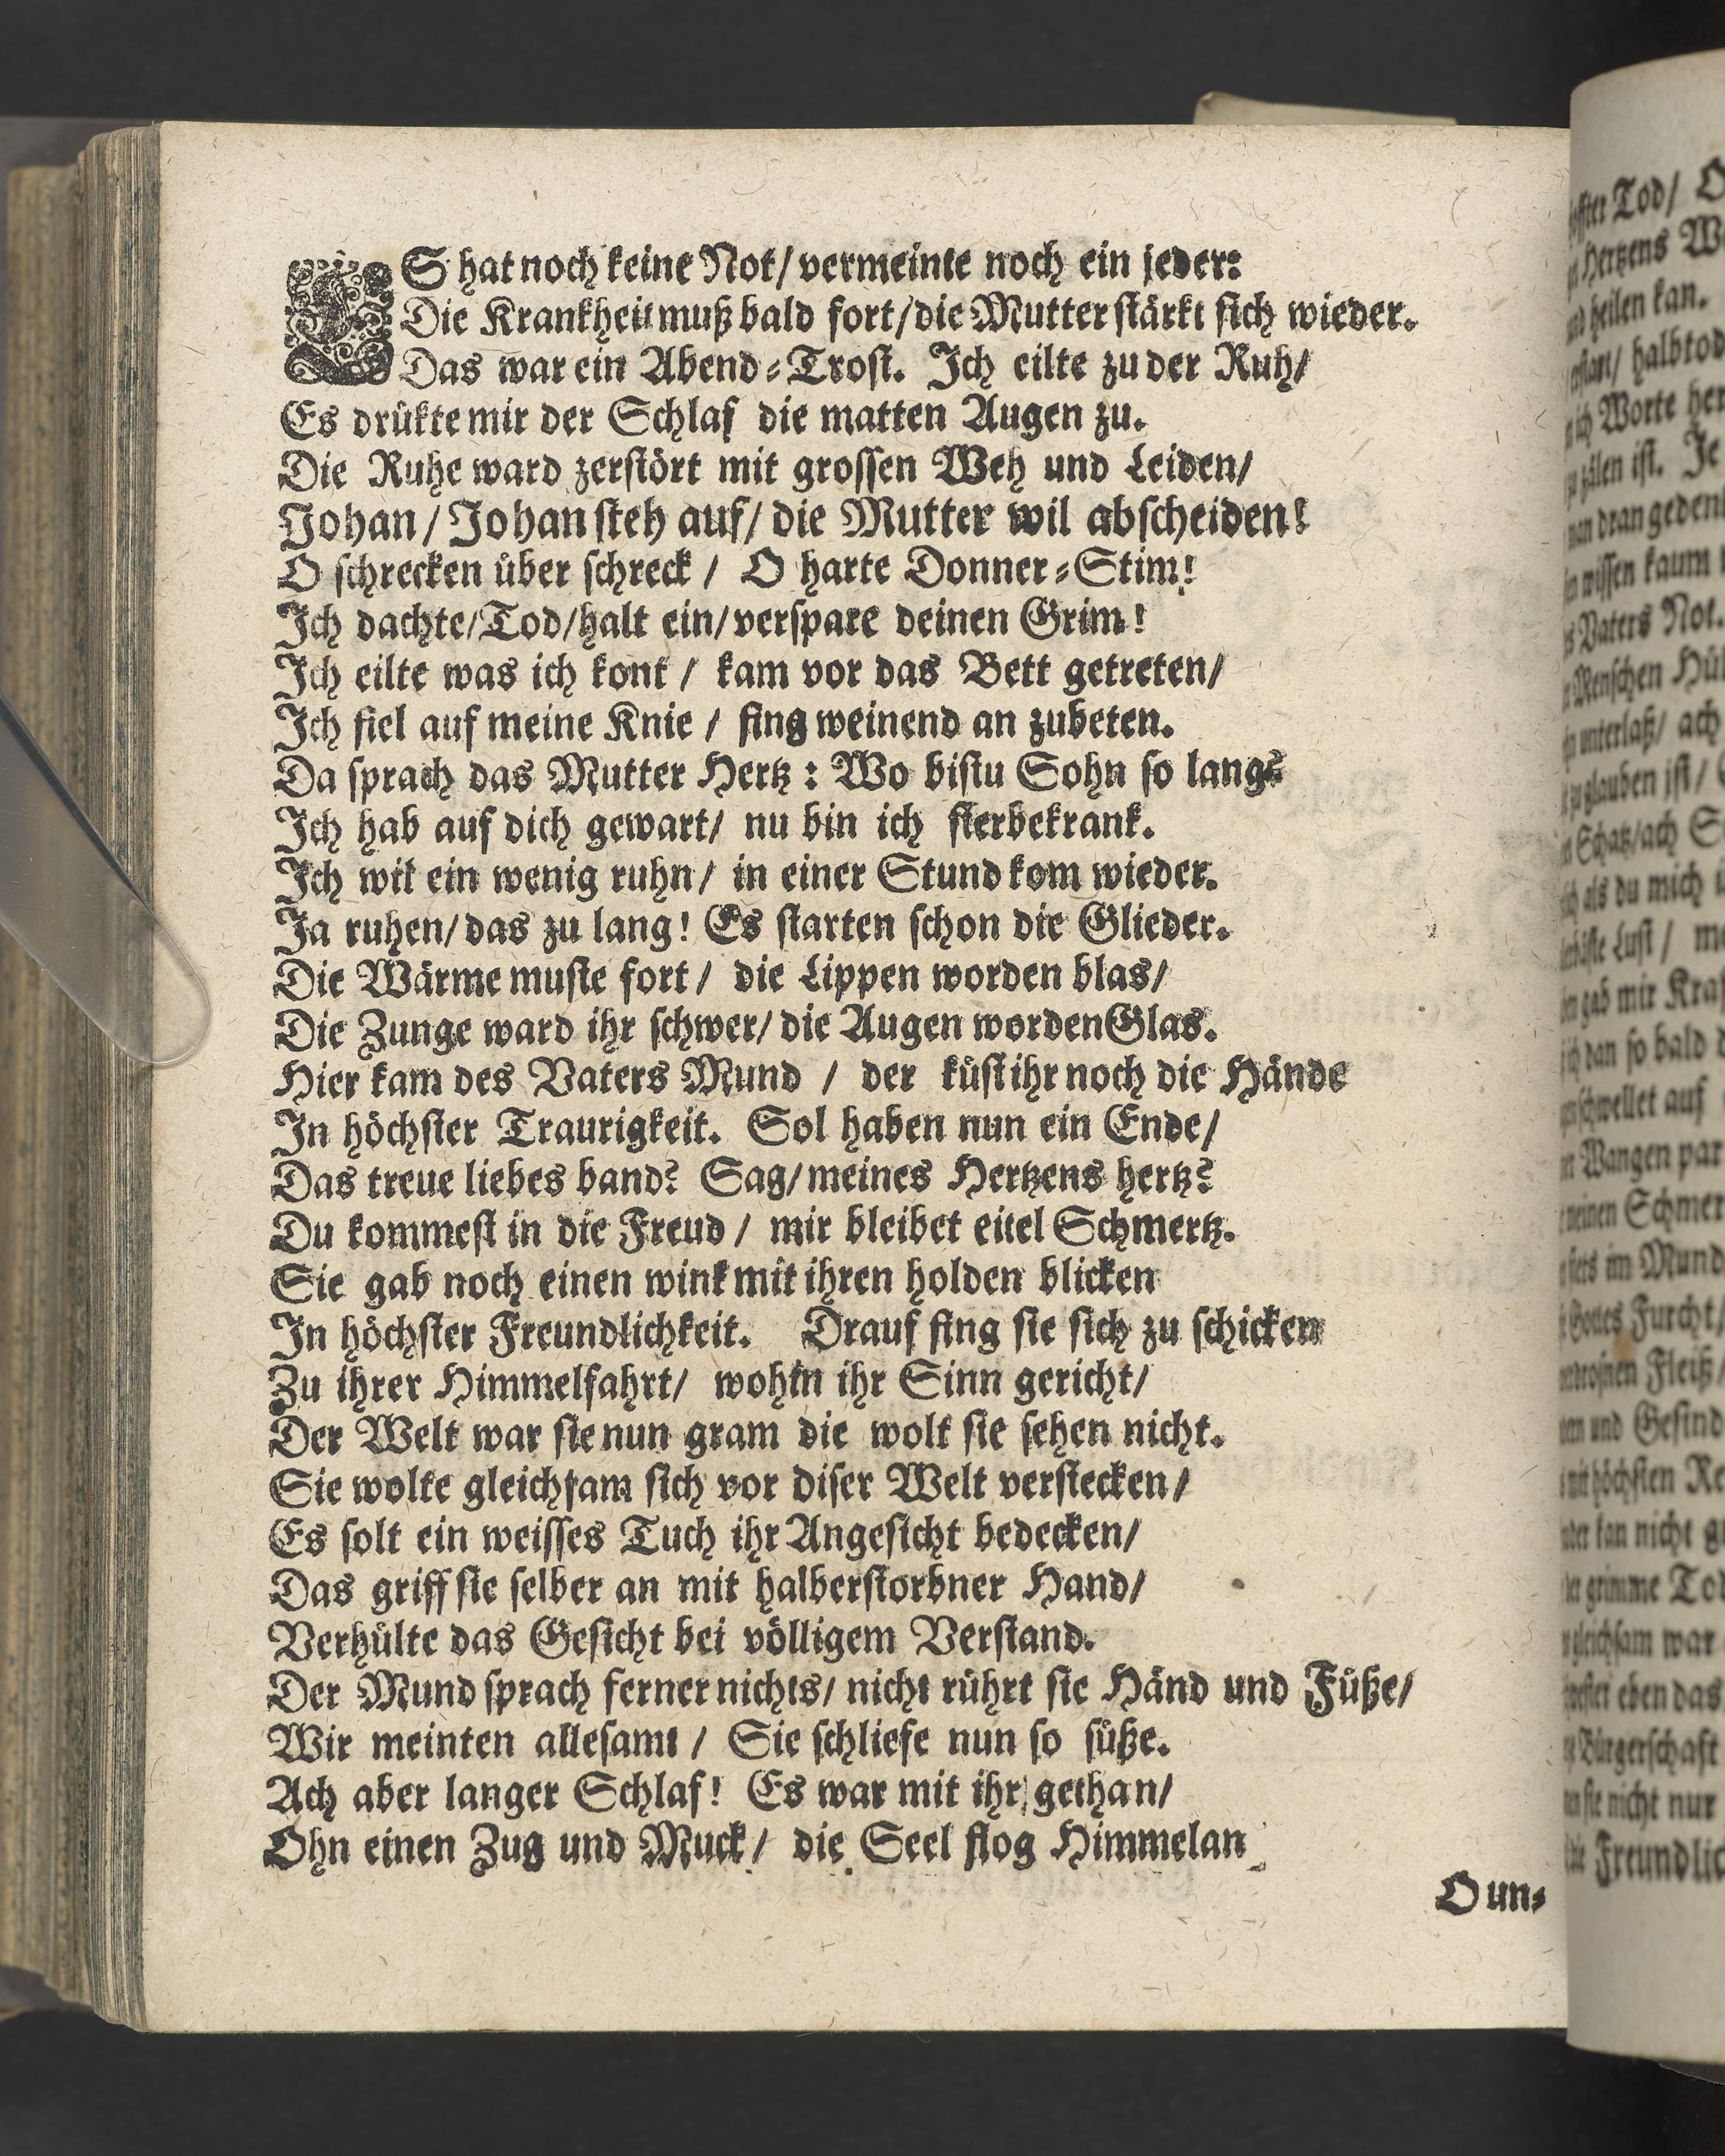 ES hat noch keine Not/ vermeinte noch ein jeder:
Die Krankheit muß bald fort/ die Mutter stärkt sich wieder.
Das war ein Abend-Trost. Ich eilte zu der Ruh/
Es drükte mir der Schlaf die matten Augen zu.
Die Ruhe ward zerstört mit grossen Weh und Leiden/
Johan/ Johan steh auf/ die Mutter wil abscheiden!
O schrecken über schreck/ O harte Donner-Stim!
Ich dachte/ Tod/ halt ein/ verspare deinen Grim!
Ich eilte was ich kont/ kam vor das Bett getreten/
Ich fiel auf meine Knie/ fing weinend an zubeten.
Da sprach das Mutter Hertz: Wo bistu Sohn so lang?
Ich hab auf dich gewart/ nu bin ich sterbekrank.
Ich wil ein wenig ruhn/ in einer Stund kom wieder.
Ja ruhen/ das zu lang! Es starten schon die Glieder.
Die Wärme muste fort/ die Lippen worden blas/
Die Zunge ward ihr schwer/ die Augen worden Glas.
Hier kam des Vaters Mund/ der küst ihr noch die Hände
In höchster Traurigkeit. Sol haben nun ein Ende/
Das treue liebes band? Sag/ meines Hertzens hertz?
Du kommest in die Freud/ mir bleibet eitel Schmertz.
Sie gab noch einen wink mit ihren holden blicken
In höchster Freundlichkeit. Drauf fing sie sich zu schicken
Zu ihrer Himmelfahrt/ wohin ihr Sinn gericht/
Der Welt war sie nun gram die wolt sie sehen nicht.
Sie wolte gleichsam sich vor diser Welt verstecken/
Es solt ein weisses Tuch ihr Angesicht bedecken/
Das griff sie selber an mit halberstorbner Hand/
Verhülte das Gesicht bei völligem Verstand.
Der Mund sprach ferner nichts/ nicht rührt sie Händ und Füße/
Wir meinten allesamt/ Sie schliefe nun so süße.
Ach aber langer Schlaf! Es war mit ihr gethan/
Ohn einen Zug und Muck/ die Seel flog Himmelan
O un-
Tod/ O
Hertzens
heilen kan.
halbtod
Worte her
zälen ist. Je
dran gedenk
wissen kaum
Vaters Not.
Menschen Hül
unterlaß/ ach
glauben ist/
Schatz/ ach S
als du mich
Lust/ me
gab mir Kraf
dan so bald d
auf
Wangen par
Schmer
im Mund
Gottes Furcht/
Fleiß/
und Gesind
höchsten Re
kan nicht
grimme Tod
gleichsam war
eben das
Bürgerschaft
sie nicht nur
Freundlic